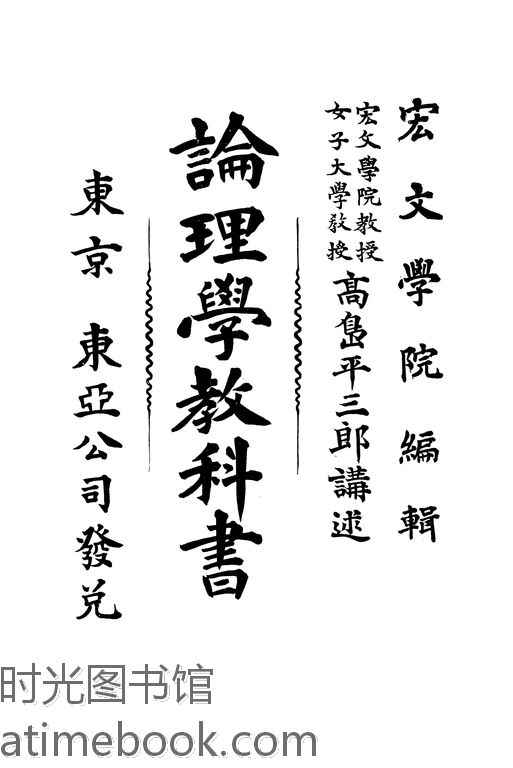 宏文學院編輯
宏文學院教授
女子大學教授
高島平三郎講述
論理學教科書
東京 東亞公司發兌
时光图书馆
atimebook.com